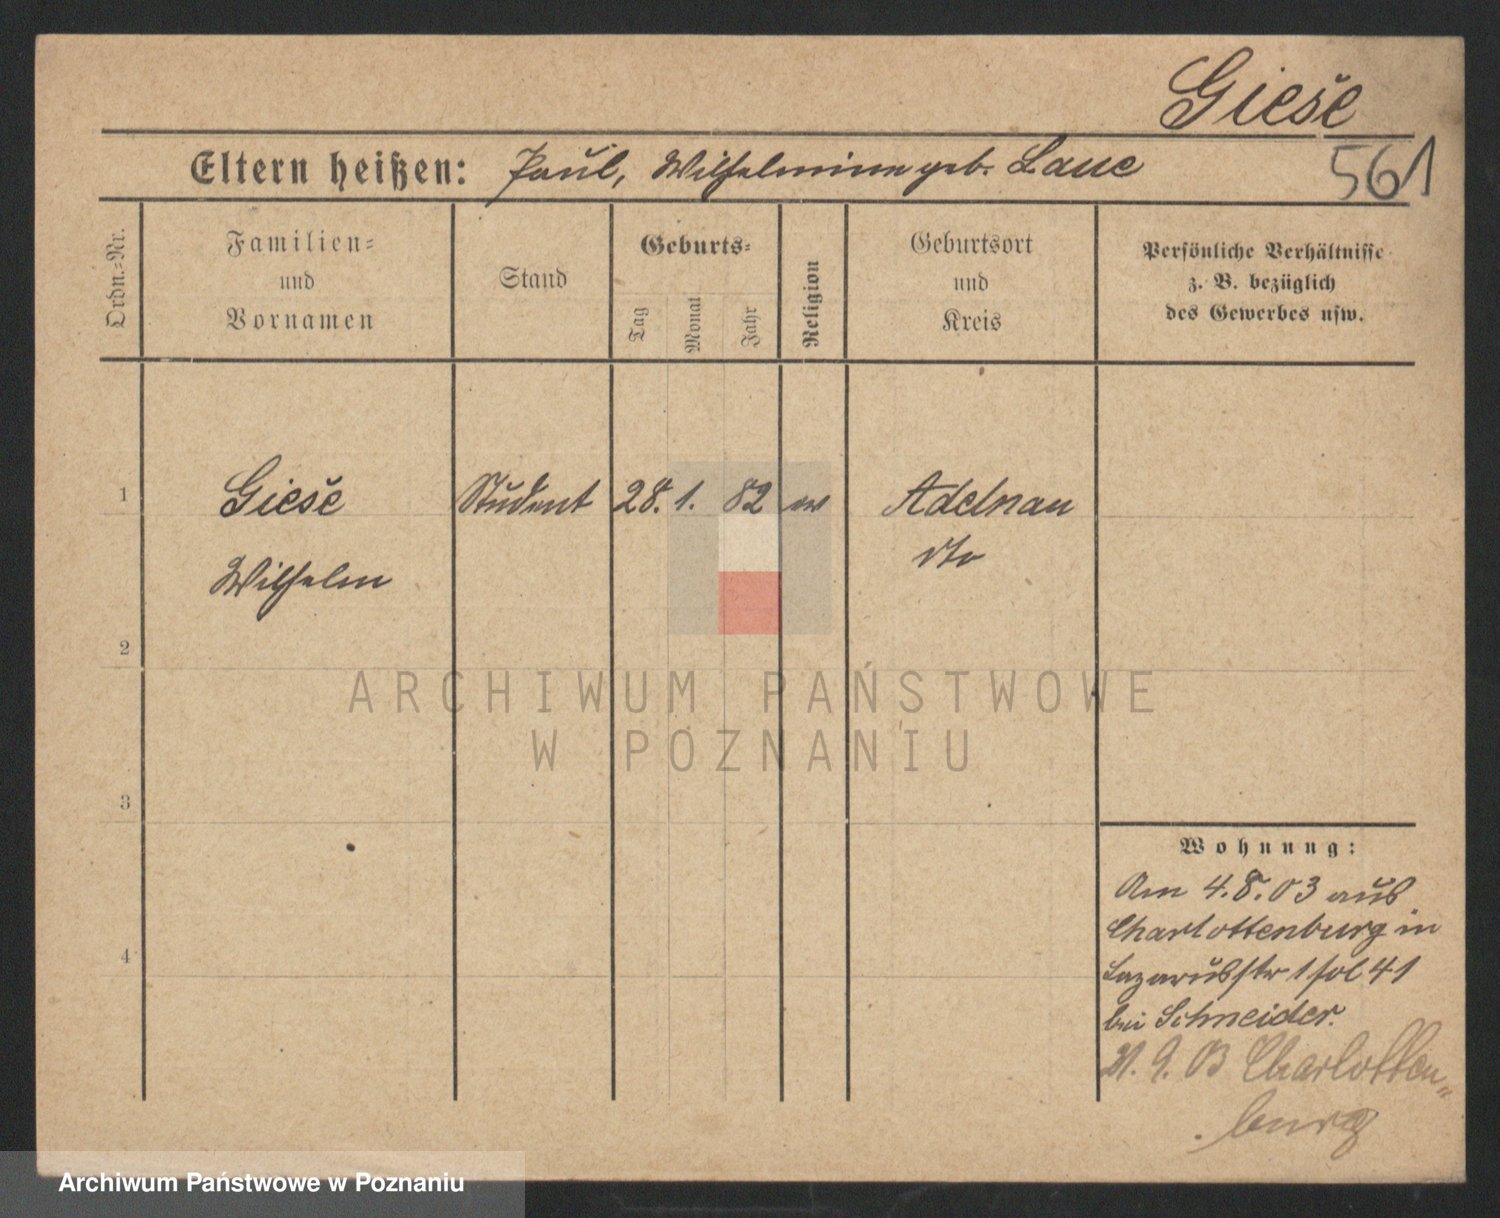 Giese
Eltern heißen: Paul, Wilhelmine geb. Laue
561
Ordn.=Nr.
Familien=
und
Vornamen
Stand
Geburts=
Tag
Monat
Jahr
Religion
Geburtsort
und
Kreis
Persönliche Verhältnisse
z. B. bezüglich
des Gewerbes usw.
1
Giese
Student
28.
1.
82
ev
Adelnau
Wilhelm
dto
2
ARCHIWUM PAŃSTWOWE
W POZNANIU
3
Wohnung:
Am 4.8.03 aus
Charlottenburg in
Lazarusstr 1 fol 41
bei Schneider.
4
21. 9. 03 Charlotten=
burg
Archiwum Państwowe w Poznaniu